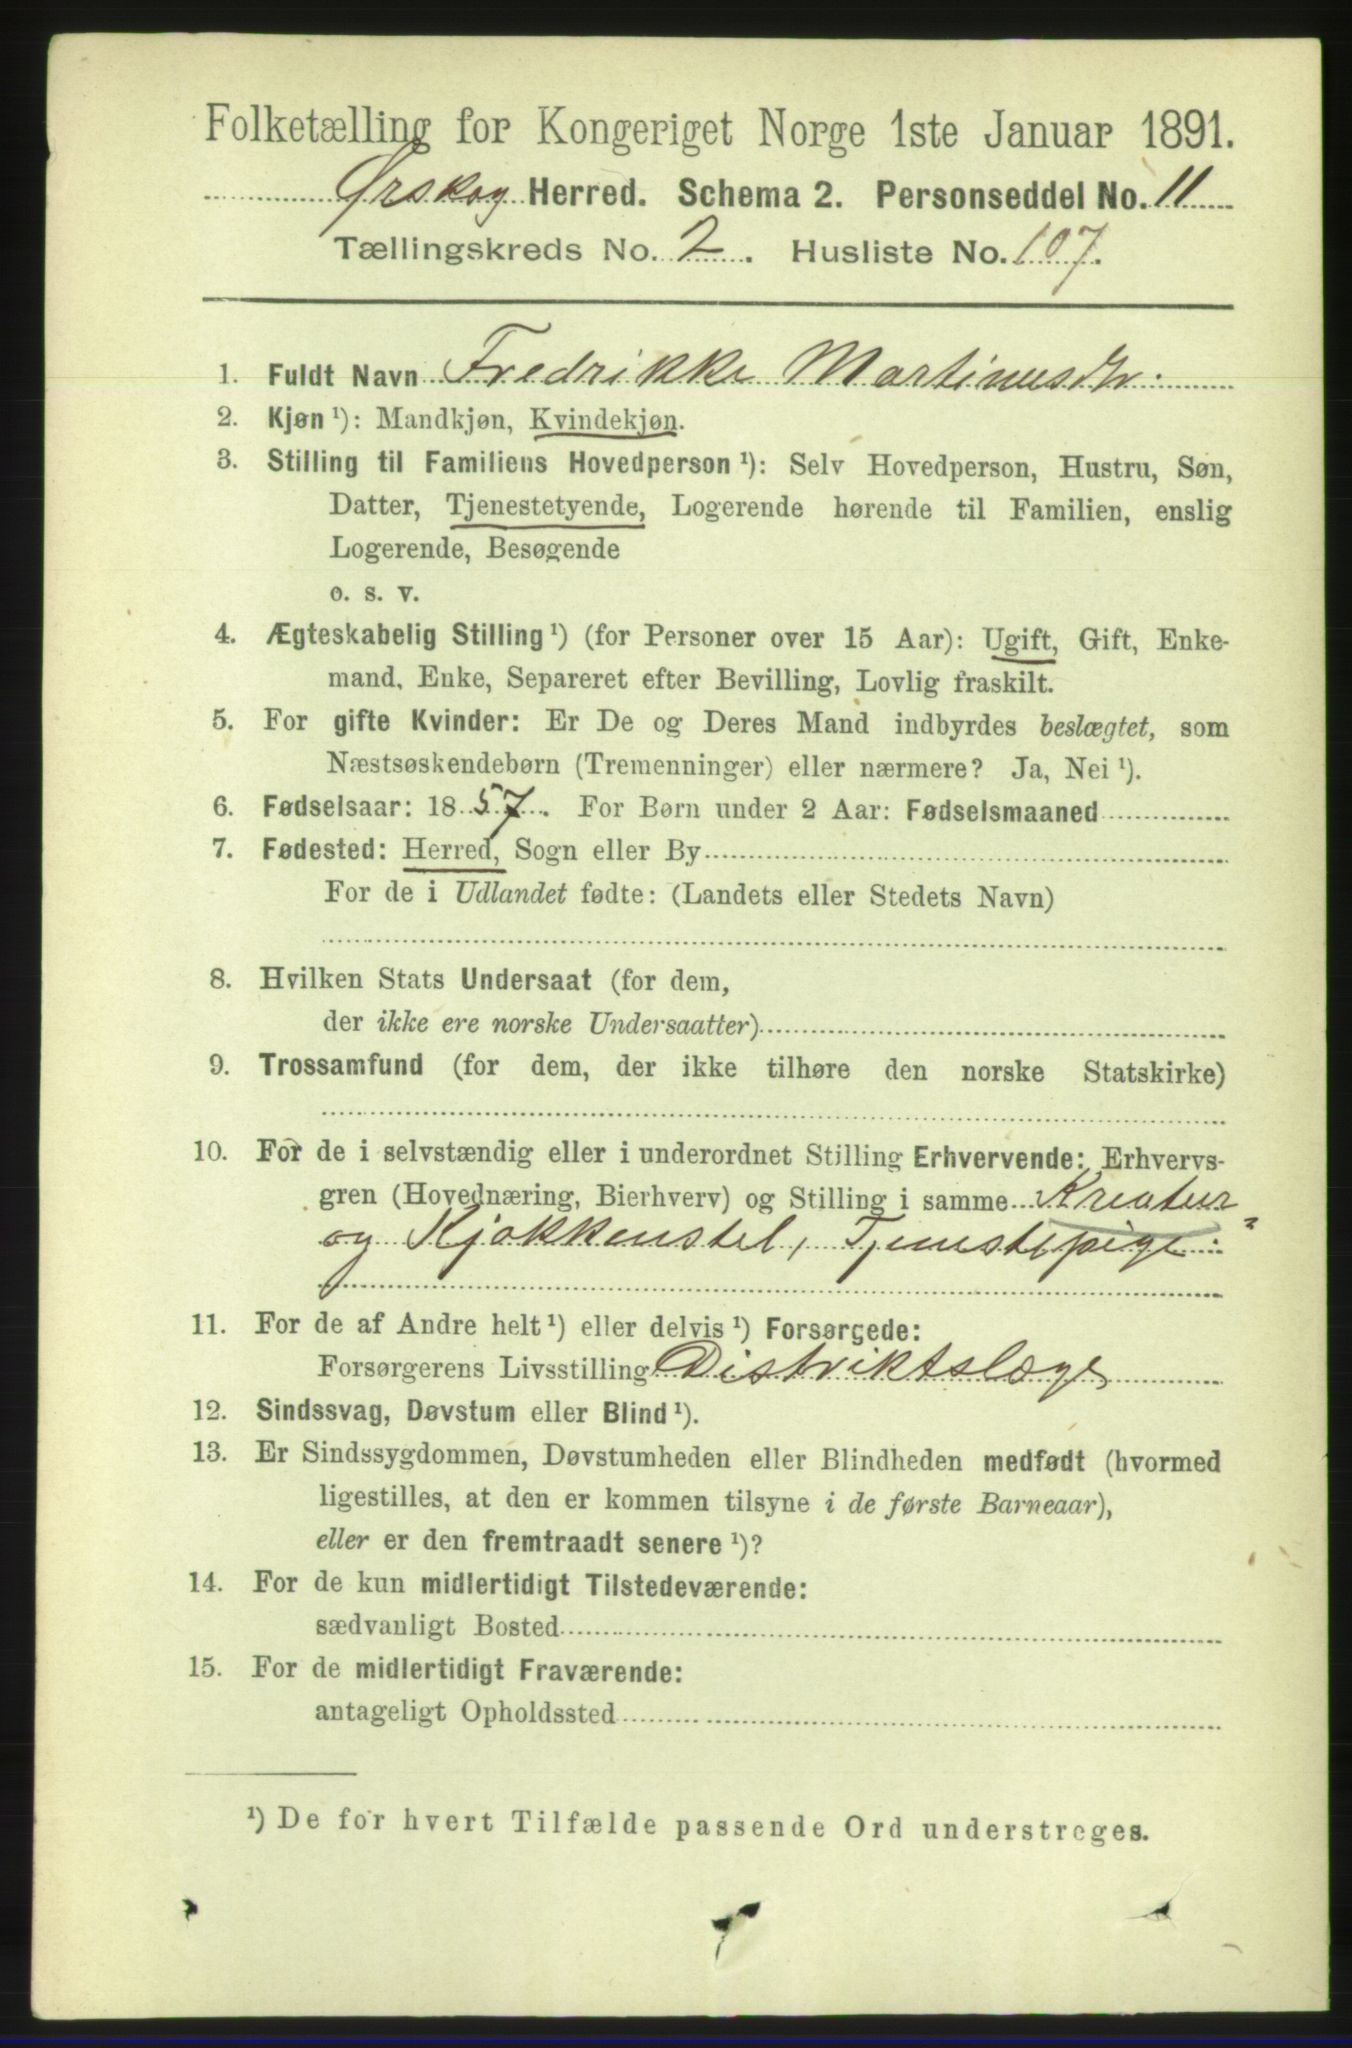 Folketælling for Kongeriget Norge 1ste Januar 1891.
Ørskog Herred. Schema 2. Personseddel No. 11
Tællingskreds No. 2. Husliste No. 107.
1. Fuldt Navn Fredrikke Martinusdtr.
2. Kjøn ¹): Mandkjøn, Kvindekjøn.
3. Stilling til Familiens Hovedperson ¹): Selv Hovedperson, Hustru, Søn,
Datter, Tjenestetyende, Logerende hørende til Familien, enslig
Logerende, Besøgende
o. s. v.
4. Ægteskabelig Stilling ¹) (for Personer over 15 Aar): Ugift, Gift, Enke-
mand, Enke, Separeret efter Bevilling, Lovlig fraskilt.
5. For gifte Kvinder: Er De og Deres Mand indbyrdes beslægtet, som
Næstsøskendebørn (Tremenninger) eller nærmere? Ja, Nei ¹).
6. Fødselsaar: 1857. For Børn under 2 Aar: Fødselsmaaned
7. Fødested: Herred, Sogn eller By
For de i Udlandet fødte: (Landets eller Stedets Navn)
8. Hvilken Stats Undersaat (for dem,
der ikke ere norske Undersaatter)
9. Trossamfund (for dem, der ikke tilhøre den norske Statskirke)
10. For de i selvstændig eller i underordnet Stilling Erhvervende: Erhvervs-
gren (Hovednæring, Bierhverv) og Stilling i samme Kreatur
og Kjøkkenstel, Tjenestepige
11. For de af Andre helt ¹) eller delvis ¹) Forsørgede:
Forsørgerens Livsstilling Distriktslæge
12. Sindssvag, Døvstum eller Blind ¹).
13. Er Sindssygdommen, Døvstumheden eller Blindheden medfødt (hvormed
ligestilles, at den er kommen tilsyne i de første Barneaar),
eller er den fremtraadt senere ¹)?
14. For de kun midlertidigt Tilstedeværende:
sædvanligt Bosted
15. For de midlertidigt Fraværende:
antageligt Opholdssted
¹) De for hvert Tilfælde passende Ord understreges.